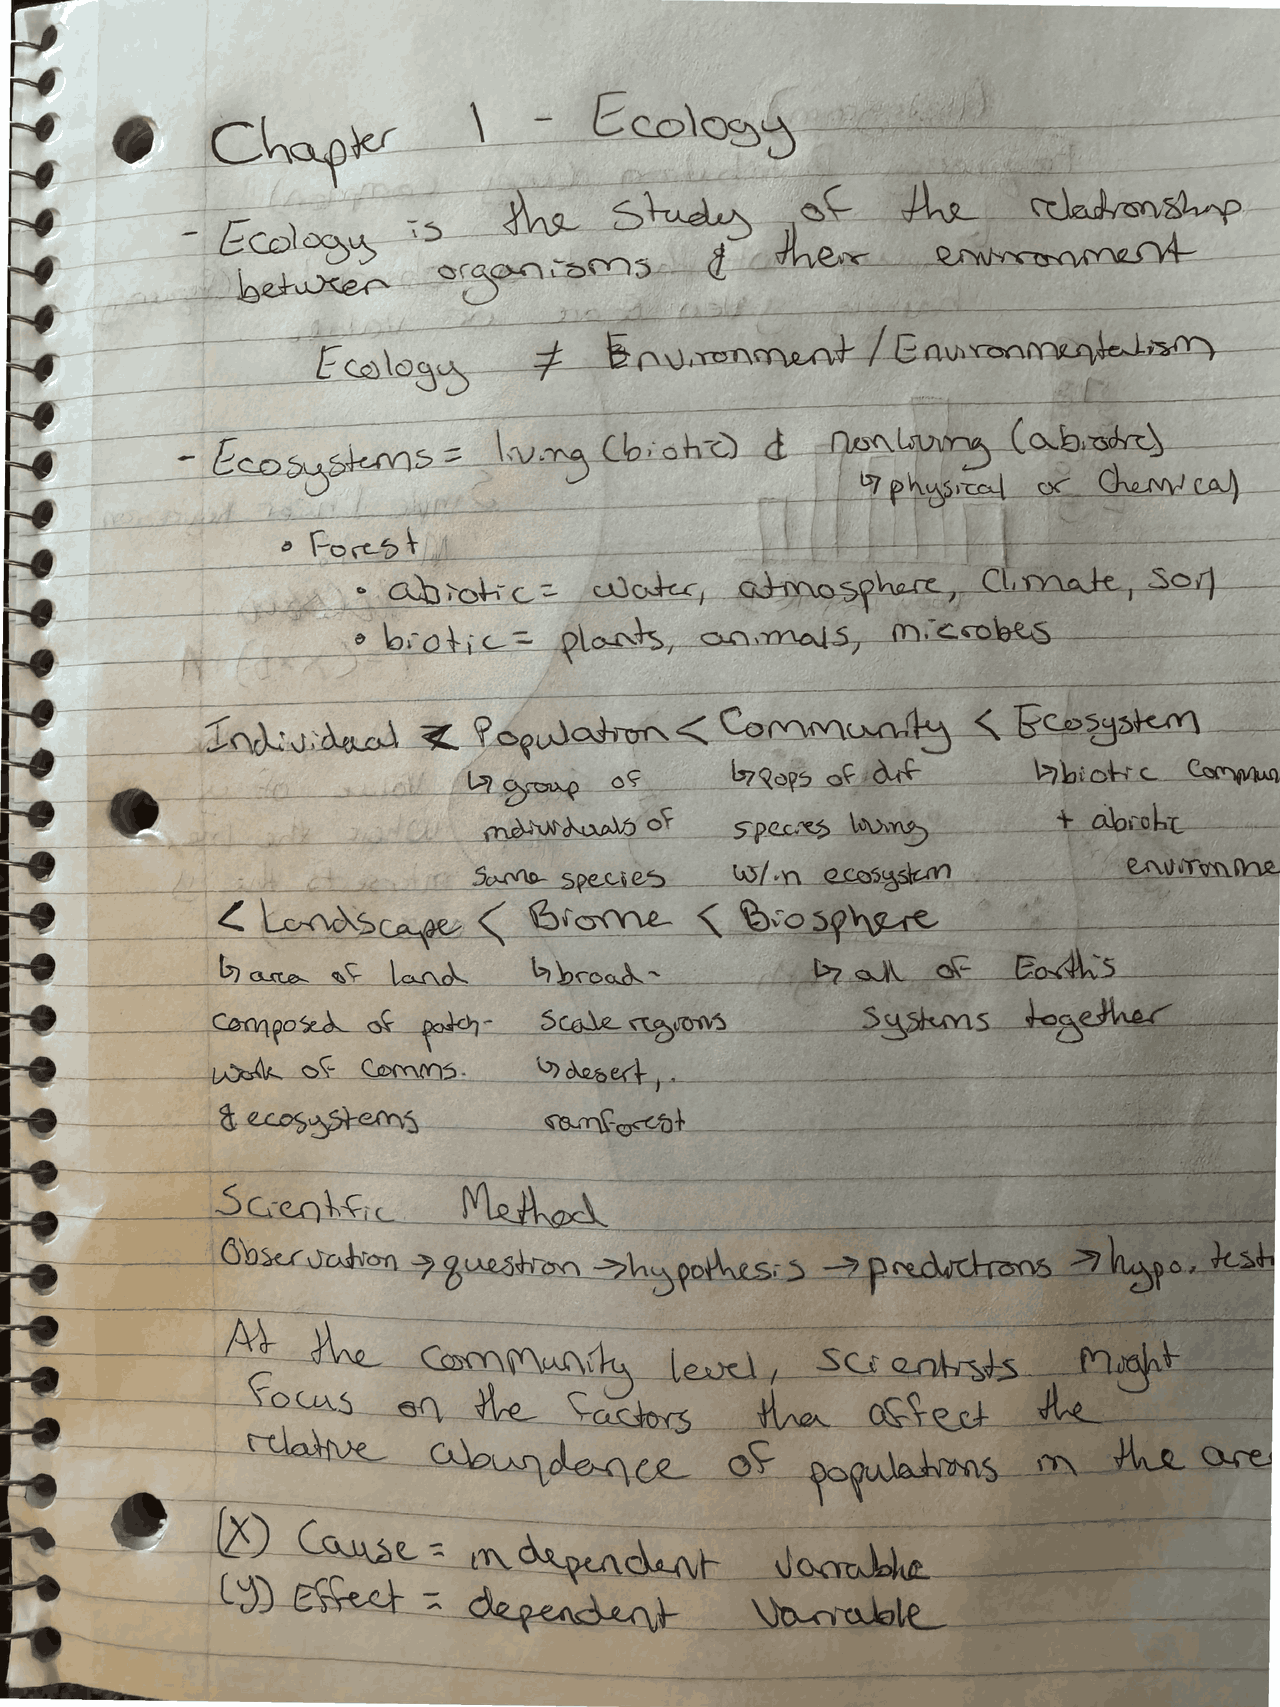 Chapter 1 - Ecology
- Ecology is the study of the relationship
between organisms & their environment
Ecology ≠ Environment/Environmentalism
- Ecosystems = living (biotic) & nonliving (abiotic)
↳ physical or chemical
• Forest
• abiotic = water, atmosphere, climate, soil
• biotic = plants, animals, microbes
Individual < Population < Community < Ecosystem
↳ group of ↳ pops of dif ↳ biotic commun
individuals of species living + abiotic
same species w/in ecosystem environme
< Landscape < Biome < Biosphere
↳ area of land ↳ broad- ↳ all of Earth's
composed of patch- scale regions systems together
work of comms. ↳ desert,
& ecosystems rainforest
Scientific Method
Observation → question → hypothesis → predictions → hypo. test
At the community level, scientists might
focus on the factors tha affect the
relative abundance of populations in the are
(X) Cause = independent variable
(y) Effect = dependent variable